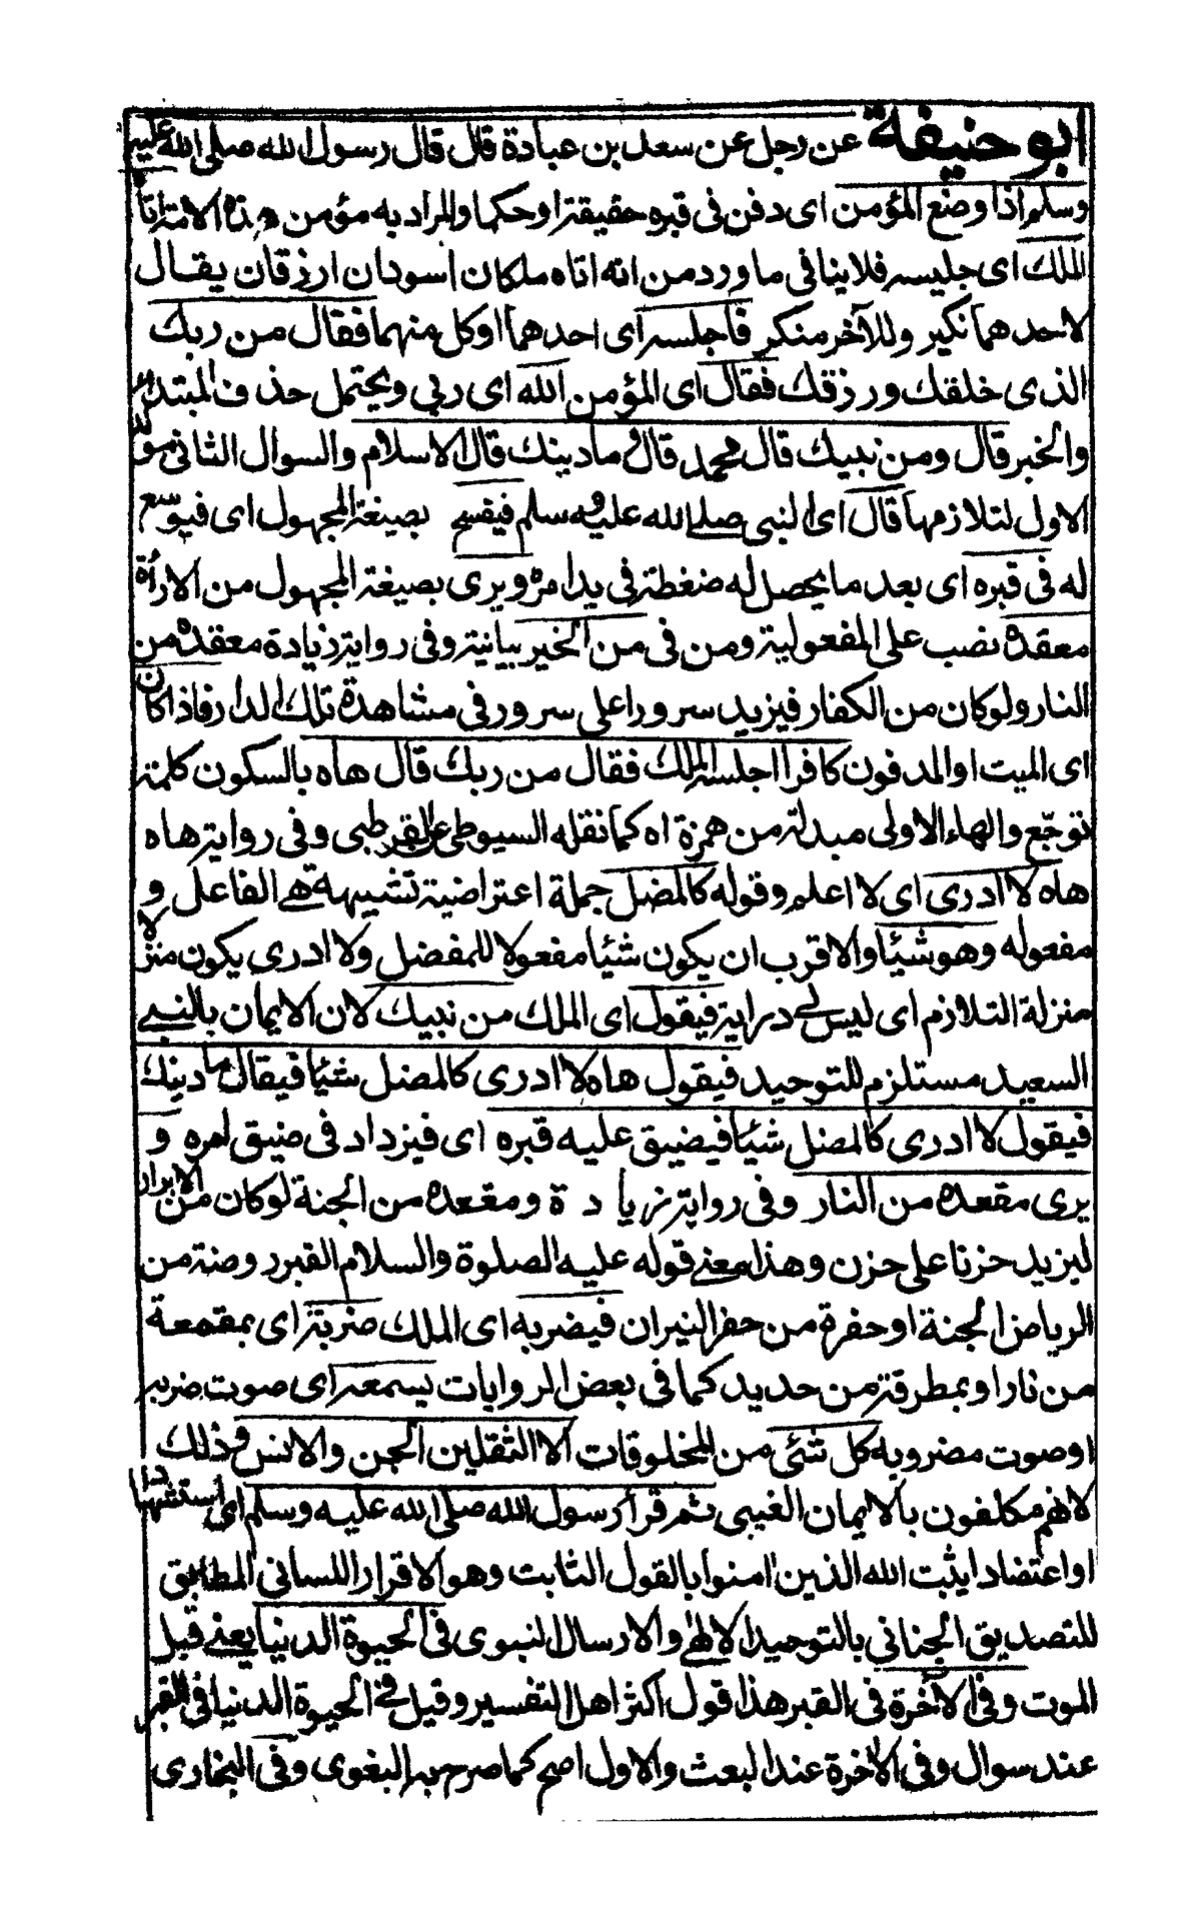 ابوحنيفة عن رجل عن سعد بن عبادة قال قال رسول الله صلى الله عليه
وسلم اذا وضع المؤمن اى دفن فى قبره حقيقة اوحكما والمراد به مؤمن هذه الامة اتاه
الملك اى جليسه فلاينافى ماورد من انه اتاه ملكان اسودان ازرقان يقال
لاحدهما نكير وللآخر منكر فاجلسه اى احدهما اوكل منهما فقال من ربك
الذى خلقك ورزقك فقال اى المؤمن الله اى ربي ويحتمل حذف المبتدأ
والخبر قال ومن نبيك قال محمد قال وما دينك قال الاسلام والسوال الثانى مؤكد
الاول لتلازمها قال اى النبى صلے الله عليه وسلم فيفسح بصيغة المجهول اى فيوسع
له فى قبره اى بعد ما يحصل له ضغطة فى يدا مره ويرى بصيغة المجهول من الارأة
معقده نصب على المفعولية ومن فى من الخير بيانية وفى رواية زيادة معقده من
النار ولوكان من الكفار فيزيد سرورا على سرور فى مشاهدة تلك الدار فاذا كان
اى الميت اوالمدفون كافرا اجلسه الملك فقال من ربك قال هاه بالسكون كلمة
توجّع والهاء الاولى مبدلة من همزة اه كما نقله السيوطى عن القرطبى وفى رواية هاه
هاه لا ادرى اى لا اعلم وقوله كالمضل جملة اعتراضية تشبيهة هے الفاعل و
مفعوله وهو شيئا والاقرب ان يكون شيئا مفعولا للمفضل ولا ادرى يكون منزلا
منزلة التلازم اى ليس لے دراية فيقول اى الملك من نبيك لان الايمان بالنبے
السعيد مستلزم للتوحيد فيقول هاه لا ادرى كالمضل شيئا فيقال ما دينك
فيقول لا ادرى كالمضل شيئا فيضيق عليه قبره اى فيزداد فى ضيق لمره و
يرى مقعده من النار وفى رواية زيادة ومقعده من الجنة لوكان من الابرار
ليزيد حزنا على حزن وهذا معنے قوله عليه الصلوة والسلام القبر روضة من
الرياض الجنة اوحفرة من حفر النيران فيضربه اى الملك ضربة اى بمقمعة
من نار اوبمطرقة من حديد كما فى بعض الروايات يسمعه اى صوت ضربه
اوصوت مضروبه كل شئى من المخلوقات الا الثقلين الجن والانس وذلك
لانهم مكلفون بالايمان الغيبى ثم قرأ رسول الله صلى الله عليه وسلم اى استشهادا
اواعتضادا يثبت الله الذين امنوا بالقول الثابت وهو الاقرار اللسانى المطابق
للتصديق الجنانى بالتوحيد الالهٰے والارسال النبوى فى الحيوة الدنيا يعنے قبل
الموت وفى الآخرة فى القبر هذا قول اكثر اهل التفسير وقيل فے الحيوة الدنيا فى القبر
عند سوال وفى الاخرة عند البعث والاول اصح كما صرح به البغوى وفى البخارى